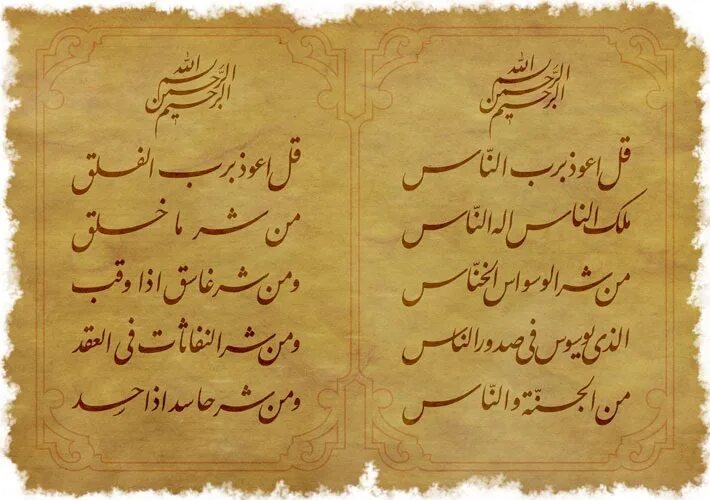 بسم الله الرحمن الرحيم
قل اعوذ برب النّاس
ملک الناس اله النّاس
من شر الوسواس الخنّاس
الذی یوسوس فی صدور الناس
من الجنّة و النّاس
بسم الله الرحمن الرحيم
قل اعوذ برب الفلق
من شر ما خلق
ومن شر غاسق اذا وقب
ومن شر النفاثات فی العقد
ومن شر حاسد اذا حسد